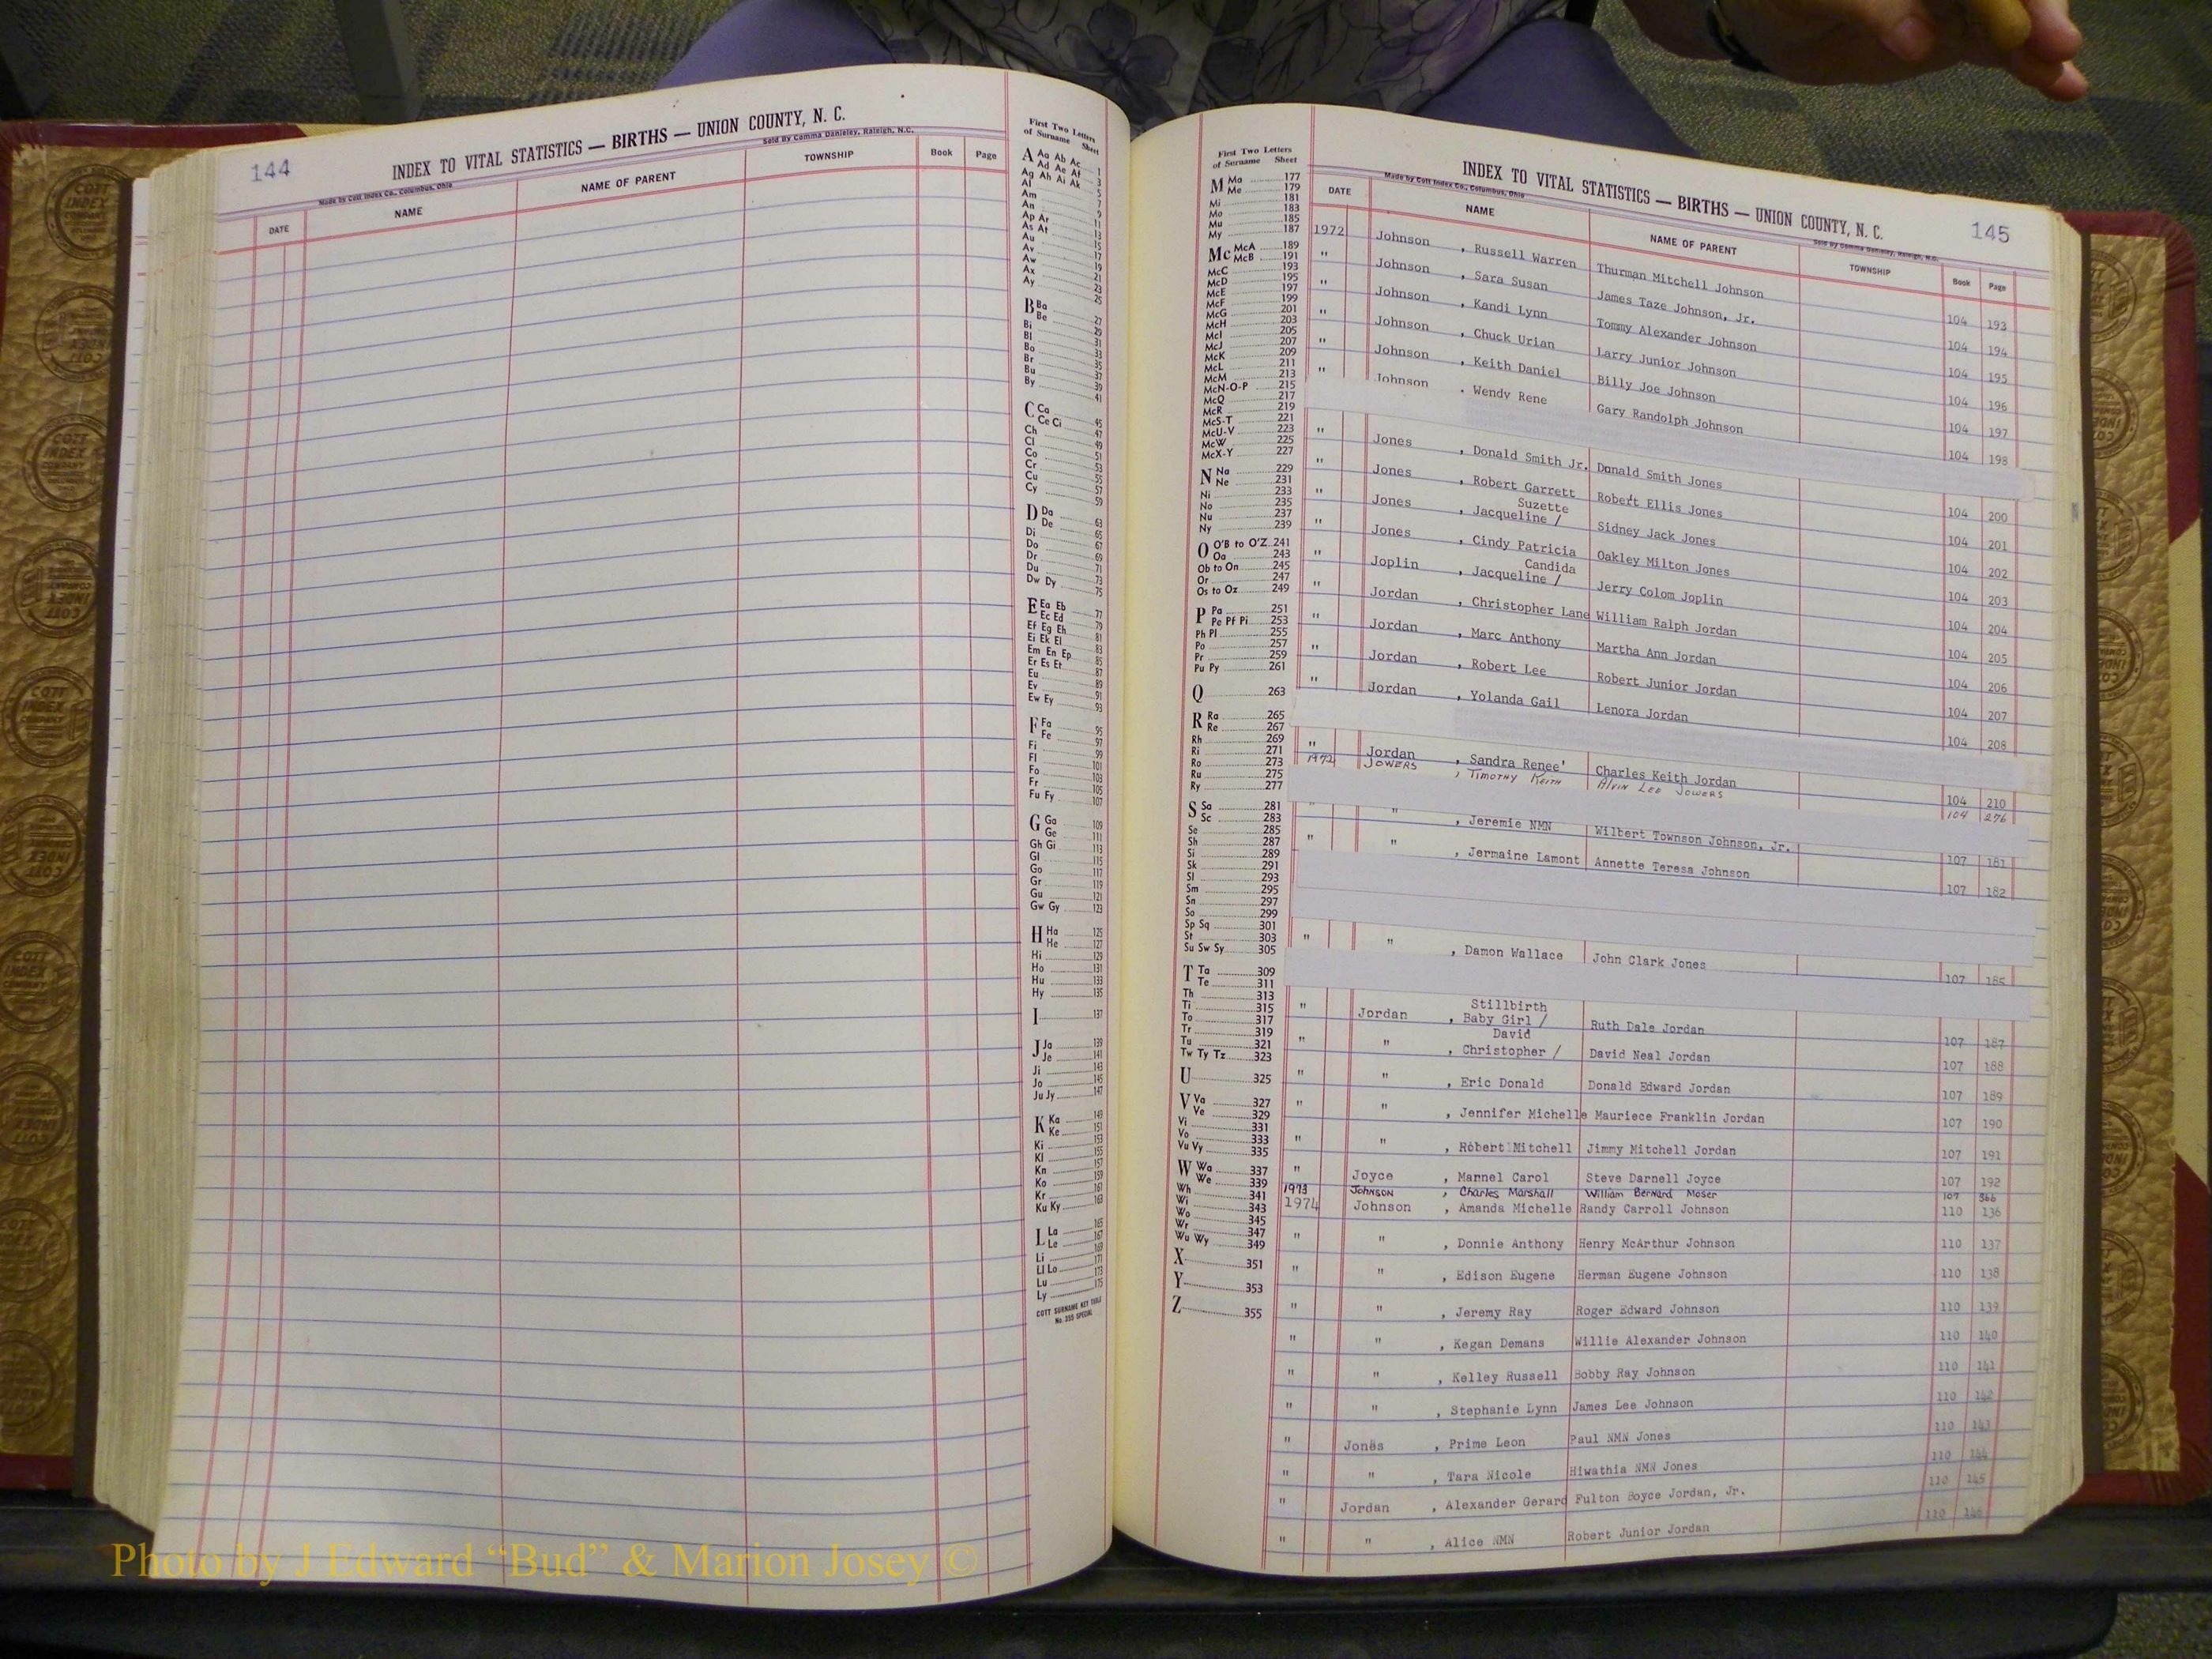 144
INDEX TO VITAL STATISTICS — BIRTHS — UNION COUNTY, N. C.
Made by Cott Index Co., Columbus, Ohio
Sold By Comma Danieley, Raleigh, N.C.
DATE NAME NAME OF PARENT TOWNSHIP Book Page
First Two Letters
of Surname Sheet
A Aa Ab Ac 1
Ad Ae Af 3
Ag Ah Ai Ak 5
Al 7
Am 9
An 11
Ap Ar 13
As At 15
Au 17
Av 19
Aw 21
Ax 23
Ay 25
B Ba 27
Be 29
Bi 31
Bl 33
Bo 35
Br 37
Bu 39
By 41
C Ca 45
Ce Ci 47
Ch 49
Cl 51
Co 53
Cr 55
Cu 57
Cy 59
D Da 63
De 65
Di 67
Do 69
Dr 71
Du 73
Dw Dy 75
E Ea Eb 77
Ec Ed 79
Ef Eg Eh 81
Ei Ek El 83
Em En Ep 85
Er Es Et 87
Eu 89
Ev 91
Ew Ey 93
F Fa 95
Fe 97
Fi 99
Fl 101
Fo 103
Fr 105
Fu Fy 107
G Ga 109
Ge 111
Gh Gi 113
Gl 115
Go 117
Gr 119
Gu 121
Gw Gy 123
H Ha 125
He 127
Hi 129
Ho 131
Hu 133
Hy 135
I 137
J Ja 139
Je 141
Ji 143
Jo 145
Ju Jy 147
K Ka 149
Ke 151
Ki 153
Kl 155
Kn 157
Ko 159
Kr 161
Ku Ky 163
L La 165
Le 167
Li 169
Ll Lo 171
Lu 173
Ly 175
COTT SURNAME KEY TABLE
No. 355 SPECIAL
First Two Letters
of Surname Sheet
M Ma 177
Me 179
Mi 181
Mo 183
Mu 185
My 187
Mc McA 189
McB 191
McC 193
McD 195
McE 197
McF 199
McG 201
McH 203
McI 205
McJ 207
McK 209
McL 211
McM 213
McN-O-P 215
McQ 217
McR 219
McS-T 221
McU-V 223
McW 225
McX-Y 227
N Na 229
Ne 231
Ni 233
No 235
Nu 237
Ny 239
O O'B to O'Z 241
Oa 243
Ob to On 245
Or 247
Os to Oz 249
P Pa 251
Pe Pf Pi 253
Ph Pl 255
Po 257
Pr 259
Pu Py 261
Q 263
R Ra 265
Re 267
Rh 269
Ri 271
Ro 273
Ru 275
Ry 277
S Sa 281
Sc 283
Se 285
Sh 287
Si 289
Sk 291
Sl 293
Sm 295
Sn 297
So 299
Sp Sq 301
St 303
Su Sw Sy 305
T Ta 309
Te 311
Th 313
Ti 315
To 317
Tr 319
Tu 321
Tw Ty Tz 323
U 325
V Va 327
Ve 329
Vi 331
Vo 333
Vu Vy 335
W Wa 337
We 339
Wh 341
Wi 343
Wo 345
Wr 347
Wu Wy 349
X 351
Y 353
Z 355
145
INDEX TO VITAL STATISTICS — BIRTHS — UNION COUNTY, N. C.
Made by Cott Index Co., Columbus, Ohio
Sold By Comma Danieley, Raleigh, N.C.
DATE NAME NAME OF PARENT TOWNSHIP Book Page
1972 Johnson , Russell Warren Thurman Mitchell Johnson 104 193
" Johnson , Sara Susan James Taze Johnson, Jr. 104 194
" Johnson , Kandi Lynn Tommy Alexander Johnson 104 195
" Johnson , Chuck Urian Larry Junior Johnson 104 196
" Johnson , Keith Daniel Billy Joe Johnson 104 197
" Johnson , Wendy Rene Gary Randolph Johnson 104 198
" Jones , Donald Smith Jr. Donald Smith Jones 104 200
" Jones , Robert Garrett Robert Ellis Jones 104 201
Suzette
" Jones , Jacqueline / Sidney Jack Jones 104 202
" Jones , Cindy Patricia Oakley Milton Jones 104 203
Candida
" Joplin , Jacqueline / Jerry Colom Joplin 104 204
" Jordan , Christopher Lane William Ralph Jordan 104 205
" Jordan , Marc Anthony Martha Ann Jordan 104 206
" Jordan , Robert Lee Robert Junior Jordan 104 207
" Jordan , Yolanda Gail Lenora Jordan 104 208
" Jordan , Sandra Renee' Charles Keith Jordan 104 210
1972 JOWERS , TIMOTHY KEITH ALVIN LEE JOWERS 104 276
" " , Jeremie NMN Wilbert Townson Johnson, Jr. 107 181
" " , Jermaine Lamont Annette Teresa Johnson 107 182
" " , Damon Wallace John Clark Jones 107 185
Stillbirth
" Jordan , Baby Girl / Ruth Dale Jordan 107 187
David
" " , Christopher / David Neal Jordan 107 188
" " , Eric Donald Donald Edward Jordan 107 189
" " , Jennifer Michelle Mauriece Franklin Jordan 107 190
" " , Robert Mitchell Jimmy Mitchell Jordan 107 191
" Joyce , Marnel Carol Steve Darnell Joyce 107 192
1973 JOHNSON , Charles Marshall William Bernard Moser 107 366
1974 Johnson , Amanda Michelle Randy Carroll Johnson 110 136
" " , Donnie Anthony Henry McArthur Johnson 110 137
" " , Edison Eugene Herman Eugene Johnson 110 138
" " , Jeremy Ray Roger Edward Johnson 110 139
" " , Kegan Demans Willie Alexander Johnson 110 140
" " , Kelley Russell Bobby Ray Johnson 110 141
" " , Stephanie Lynn James Lee Johnson 110 142
" Jones , Prime Leon Paul NMN Jones 110 143
" " , Tara Nicole Hiwathia NMN Jones 110 144
" Jordan , Alexander Gerard Fulton Boyce Jordan, Jr. 110 145
" " , Alice NMN Robert Junior Jordan 110 146
Photo by J Edward “Bud” & Marion Josey ©